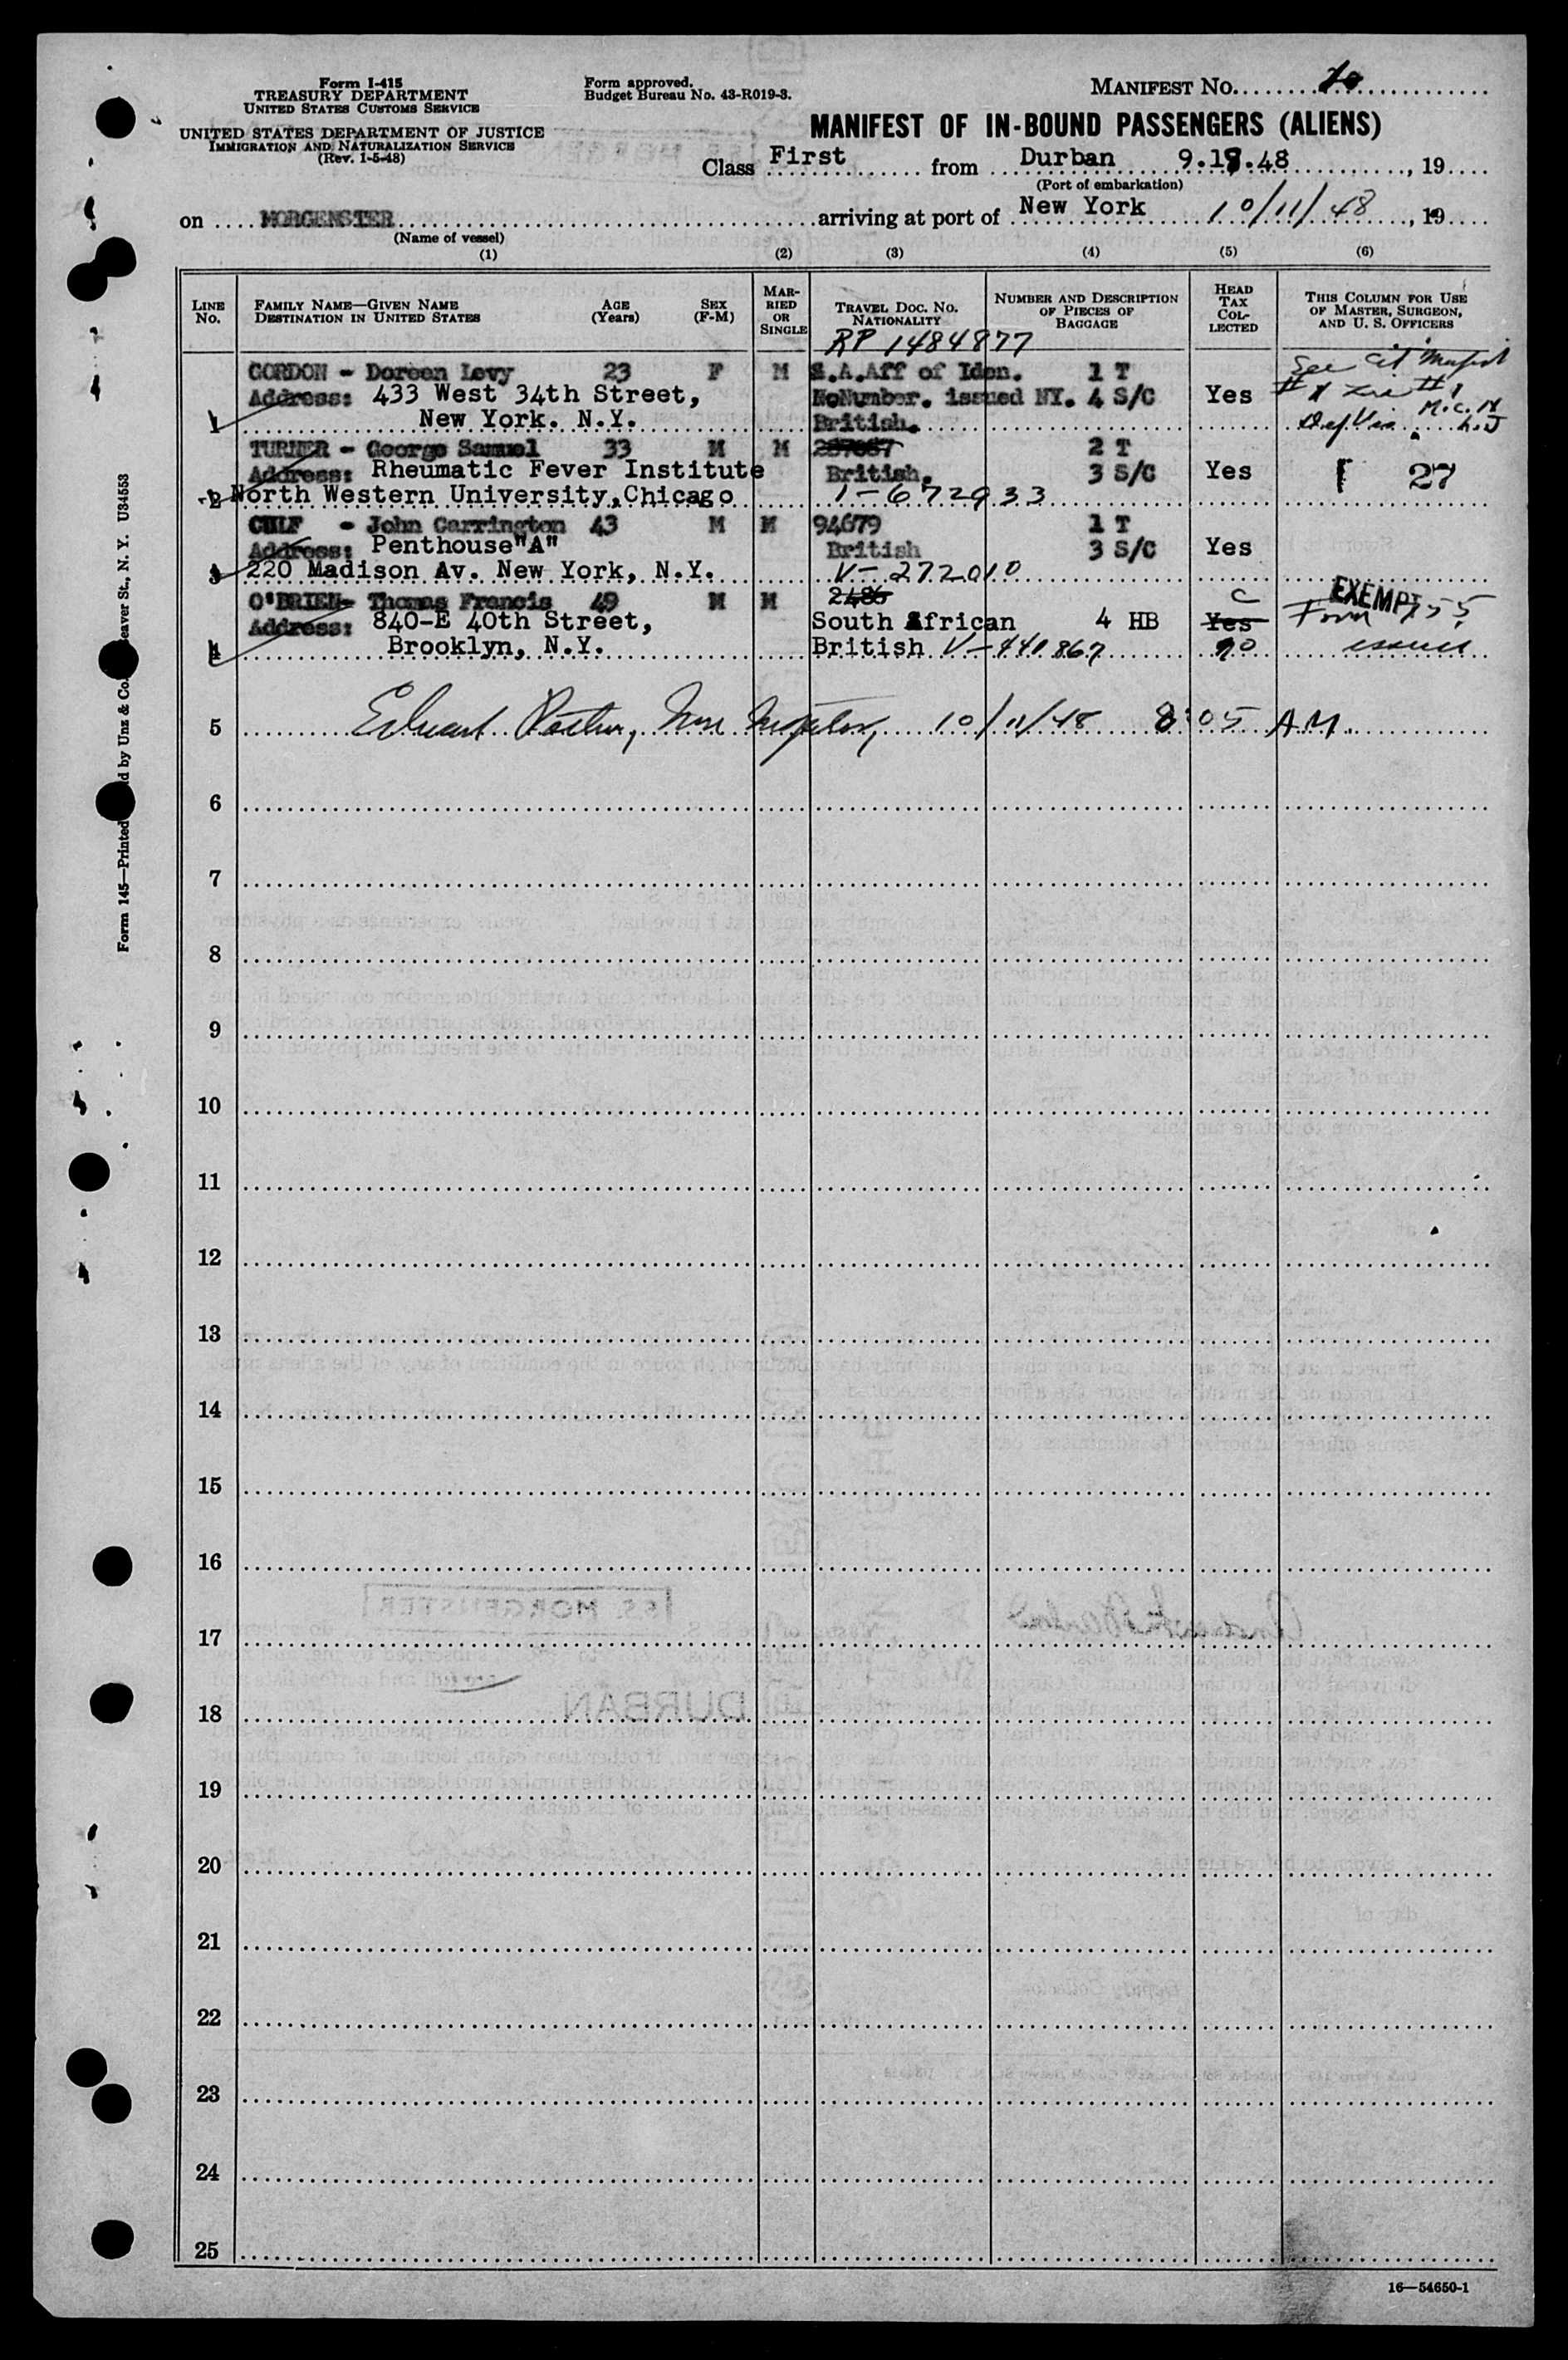 Form I-415
TREASURY DEPARTMENT
UNITED STATES CUSTOMS SERVICE
UNITED STATES DEPARTMENT OF JUSTICE
IMMIGRATION AND NATURALIZATION SERVICE
(Rev. 1-5-48)
Form approved.
Budget Bureau No. 43-R019-3.
MANIFEST NO.
MANIFEST OF IN-BOUND PASSENGERS (ALIENS)
Class First from Durban 9.18.48, 19
(Port of embarkation)
on MORGENSTER arriving at port of New York 10/11/48, 19
(Name of vessel)
(1) (2) (3) (4) (5) (6)
LINE No. FAMILY NAME—GIVEN NAME DESTINATION IN UNITED STATES AGE (Years) SEX (F-M) MARRIED OR SINGLE TRAVEL DOC. NO. NATIONALITY NUMBER AND DESCRIPTION OF PIECES OF BAGGAGE HEAD TAX COLLECTED THIS COLUMN FOR USE OF MASTER, SURGEON, AND U. S. OFFICERS
RP 1484877
GORDON - Doreen Levy 23 F M S.A.Aff of Iden. 1 T See
Address: 433 West 34th Street, NoNumber. issued NY. 4 S/C Yes
1 New York. N.Y. British.
TURNER - George Samuel 33 M M 287667 2 T
Address: Rheumatic Fever Institute British. 3 S/C Yes 27
2 North Western University,Chicago 1-672933
CHLF - John Carrington 43 M M 94679 1 T
Address: Penthouse"A" British 3 S/C Yes
3 220 Madison Av. New York, N.Y. V-272010
O'BRIEN- Thomas Francis 49 M M 2486 C EXEMPT
Address: 840-E 40th Street, South African 4 HB Yes Form
4 Brooklyn, N.Y. British V-441867 issued
5 10/11/48 8:05 A.M.
6
7
8
9
10
11
12
13
14
15
16
17
18
19
20
21
22
23
24
25
16—54650-1
Form 145—Printed
d by Unz & Co.
eaver St., N. Y. U34553